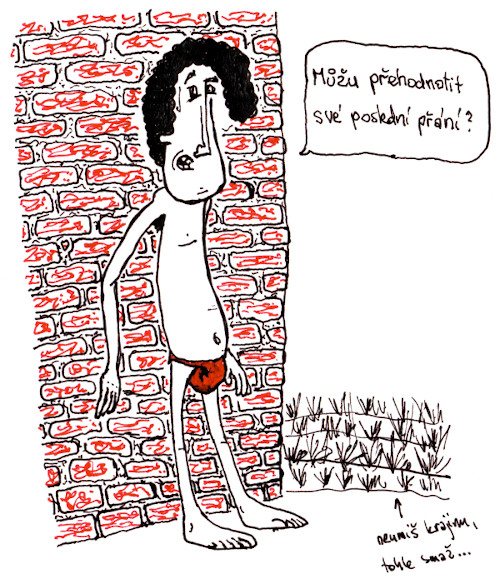 Můžu přehodnotit
své poslední přání?
neumíš krajinu,
tohle smaž...